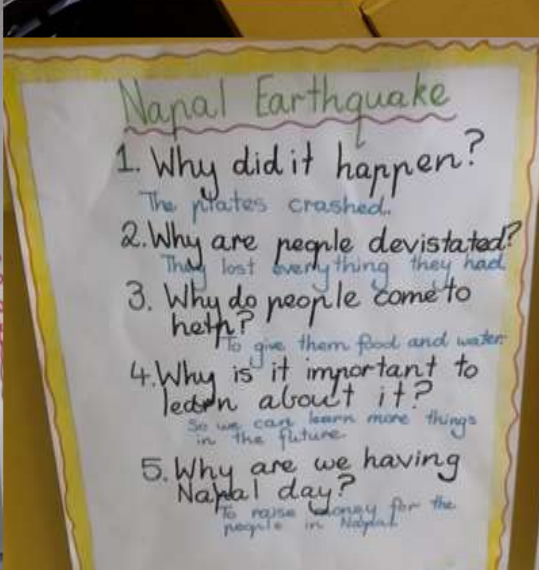 Napal Earthquake
1. Why did it happen?
The plates crashed.
2. Why are people devistated?
They lost everything they had.
3. Why do people come to
help?
To give them food and water.
4. Why is it important to
learn about it?
So we can learn more things
in the future.
5. Why are we having
Napal day?
To raise money for the
people in Napal